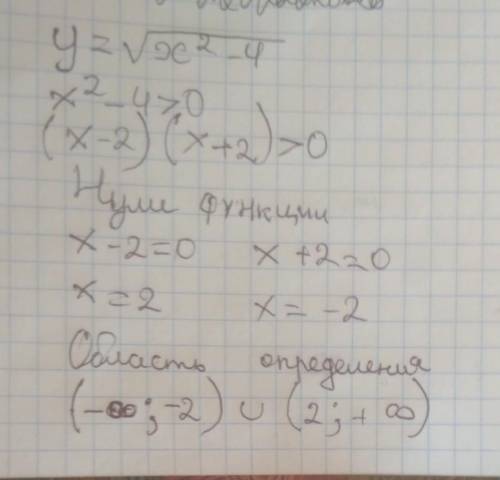 y = √x² - 4
x² - 4 > 0
(x - 2) (x + 2) > 0
Нули функции
x - 2 = 0 x + 2 = 0
x = 2 x = -2
Область определения
(-∞; -2) ∪ (2; +∞)